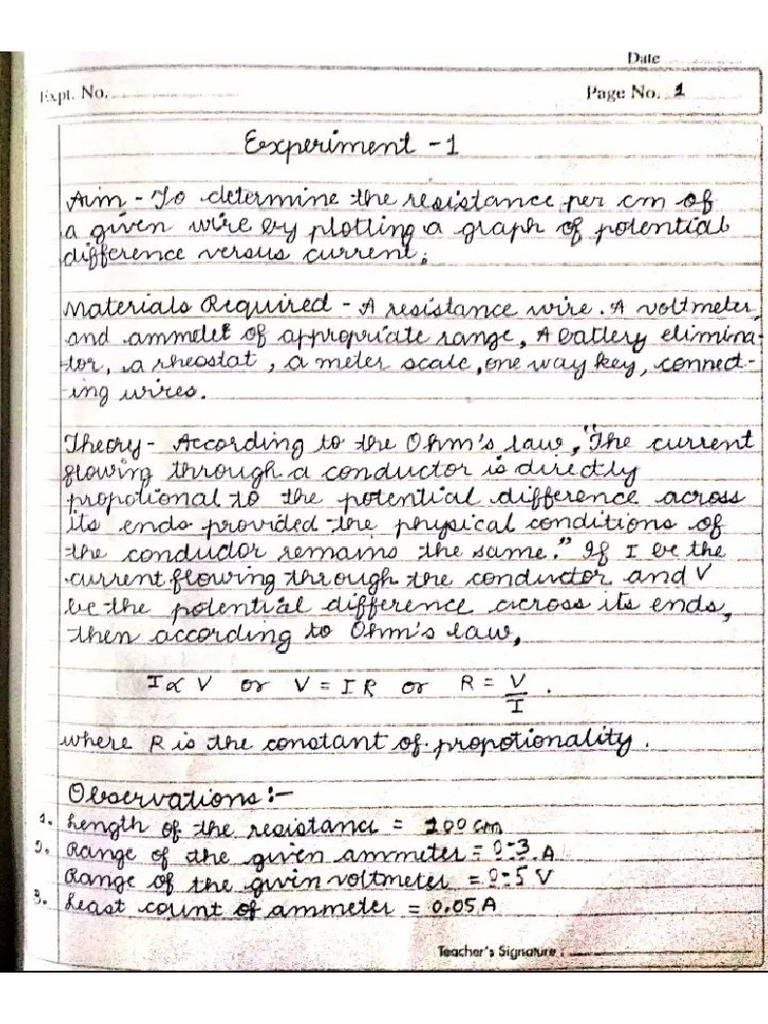 Date
Expt. No.
Page No. 1
Experiment - 1
Aim - To determine the resistance per cm of
a given wire by plotting a graph of potential
difference versus current.
Materials Required - A resistance wire. A voltmeter,
and ammeter of appropriate range, A battery elimina-
tor, a rheostat, a meter scale, one way key, connect-
ing wires.
Theory - According to the Ohm's law, "The current
flowing through a conductor is directly
propotional to the potential difference across
its ends provided the physical conditions of
the conductor remains the same." If I be the
current flowing through the conductor and V
be the potential difference across its ends,
then according to Ohm's law,
I ∝ V or V = IR or R = V/I .
where R is the constant of propotionality.
Observations :-
1. Length of the resistance = 100 cm
2. Range of the given ammeter = 0-3 A
Range of the given voltmeter = 0-5 V
3. Least count of ammeter = 0.05 A
Teacher's Signature :